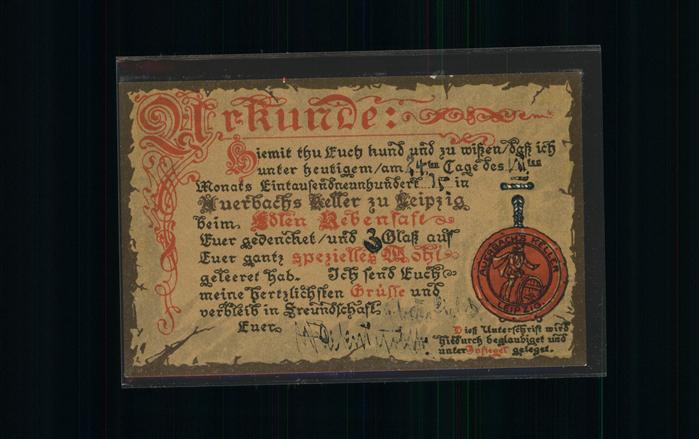 Urkunde:
Hiemit thu Euch kund und zu wißen/daß ich
unter heutigem/am 24ten Tage des
Monats Eintausendneunhundert 15 in
Auerbachs Keller zu Leipzig
beim Edlen Rebensaft
Euer gedencket/und 3 Glaß auf
Euer gantz spezielles Wohl
geleeret hab. Ich send Euch
meine hertzlichsten Grüsse und
verbleib in Freundschaft
Euer
AUERBACHS KELLER
LEIPZIG
Dieß Unterschrift wird
hiedurch beglaubiget und
unter Insiegel geleget.